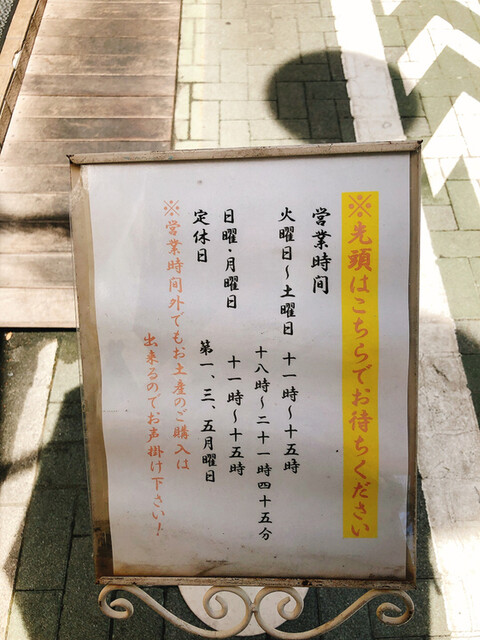 ※先頭はこちらでお待ちください
営業時間
火曜日～土曜日 十一時～十五時
十八時～二十一時四十五分
日曜・月曜日 十一時～十五時
定休日 第一、三、五月曜日
※営業時間外でもお土産のご購入は
出来るのでお声掛け下さい！